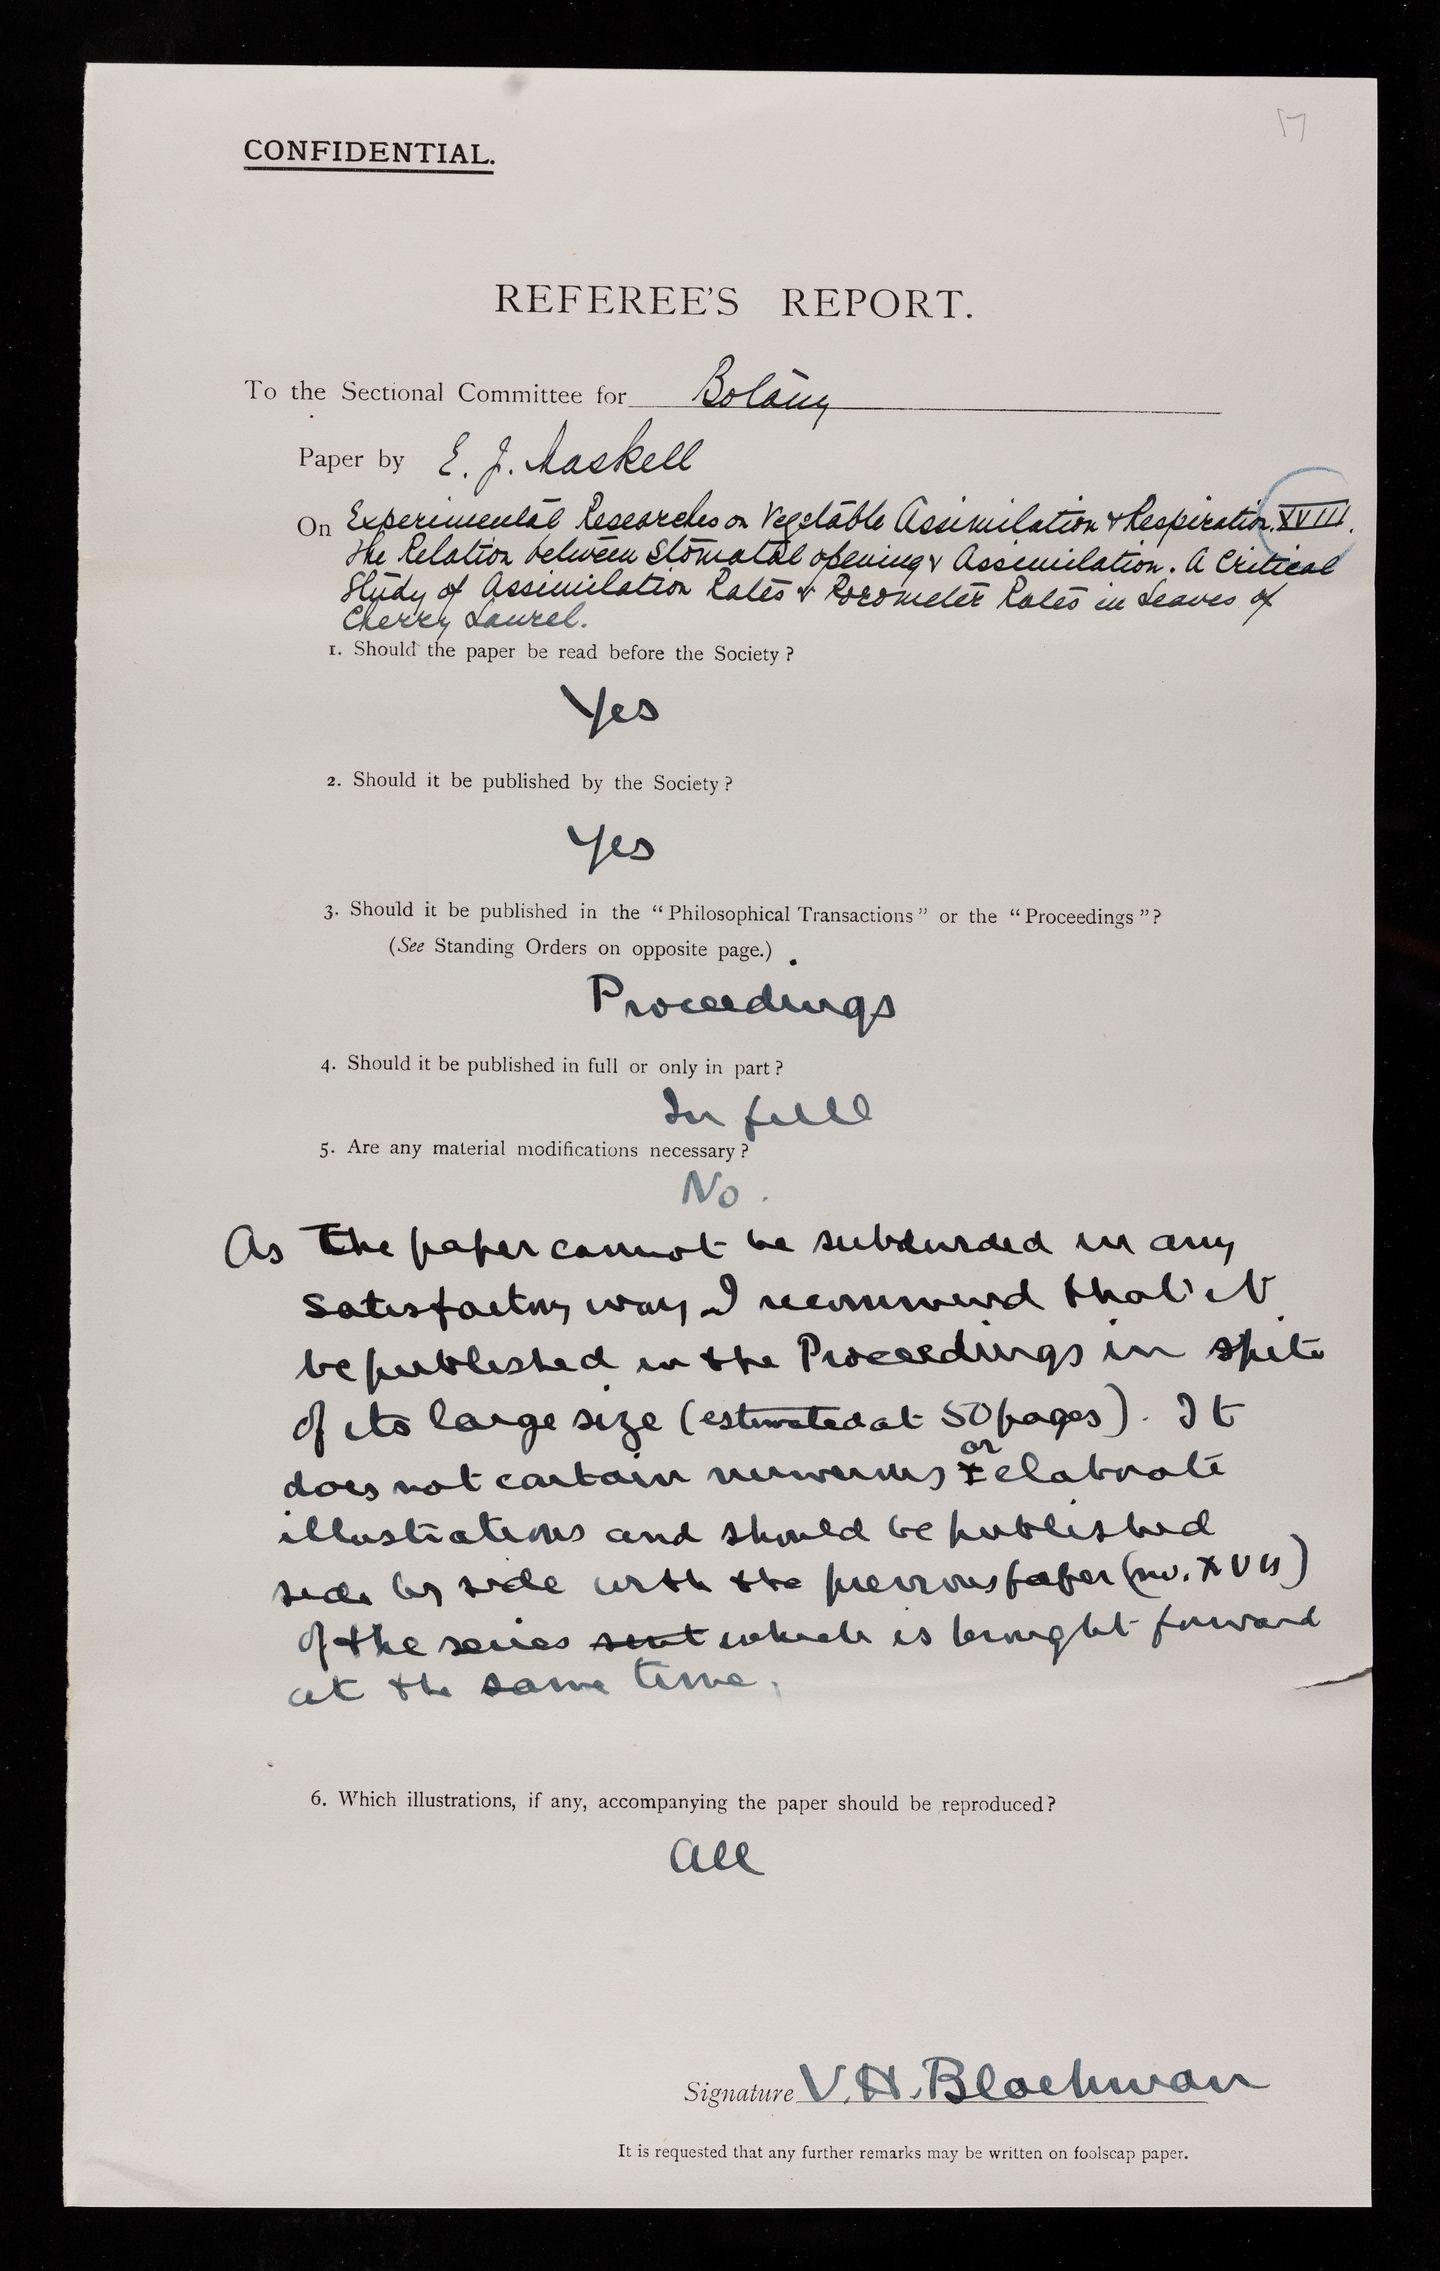 17
CONFIDENTIAL.
REFEREE'S REPORT.
To the Sectional Committee for Botany
Paper by E. J. Maskell
On Experimental Researches on Vegetable Assimilation & Respiration. XVIII.
The Relation between Stomatal opening & Assimilation. A Critical
Study of Assimilation Rates & Porometer Rates in Leaves of
Cherry Laurel.
1. Should the paper be read before the Society?
Yes
2. Should it be published by the Society?
Yes
3. Should it be published in the "Philosophical Transactions" or the "Proceedings"?
(See Standing Orders on opposite page.)
Proceedings
4. Should it be published in full or only in part?
In full
5. Are any material modifications necessary?
No.
As the paper cannot be subdivided in any
satisfactory way I recommend that it
be published in the Proceedings in spite
of its large size (estimated at 50 pages). It
does not contain numerous or elaborate
illustrations and should be published
side by side with the previous paper (no. XVII)
of the series sent which is brought forward
at the same time.
6. Which illustrations, if any, accompanying the paper should be reproduced?
All
Signature V. H. Blackman
It is requested that any further remarks may be written on foolscap paper.